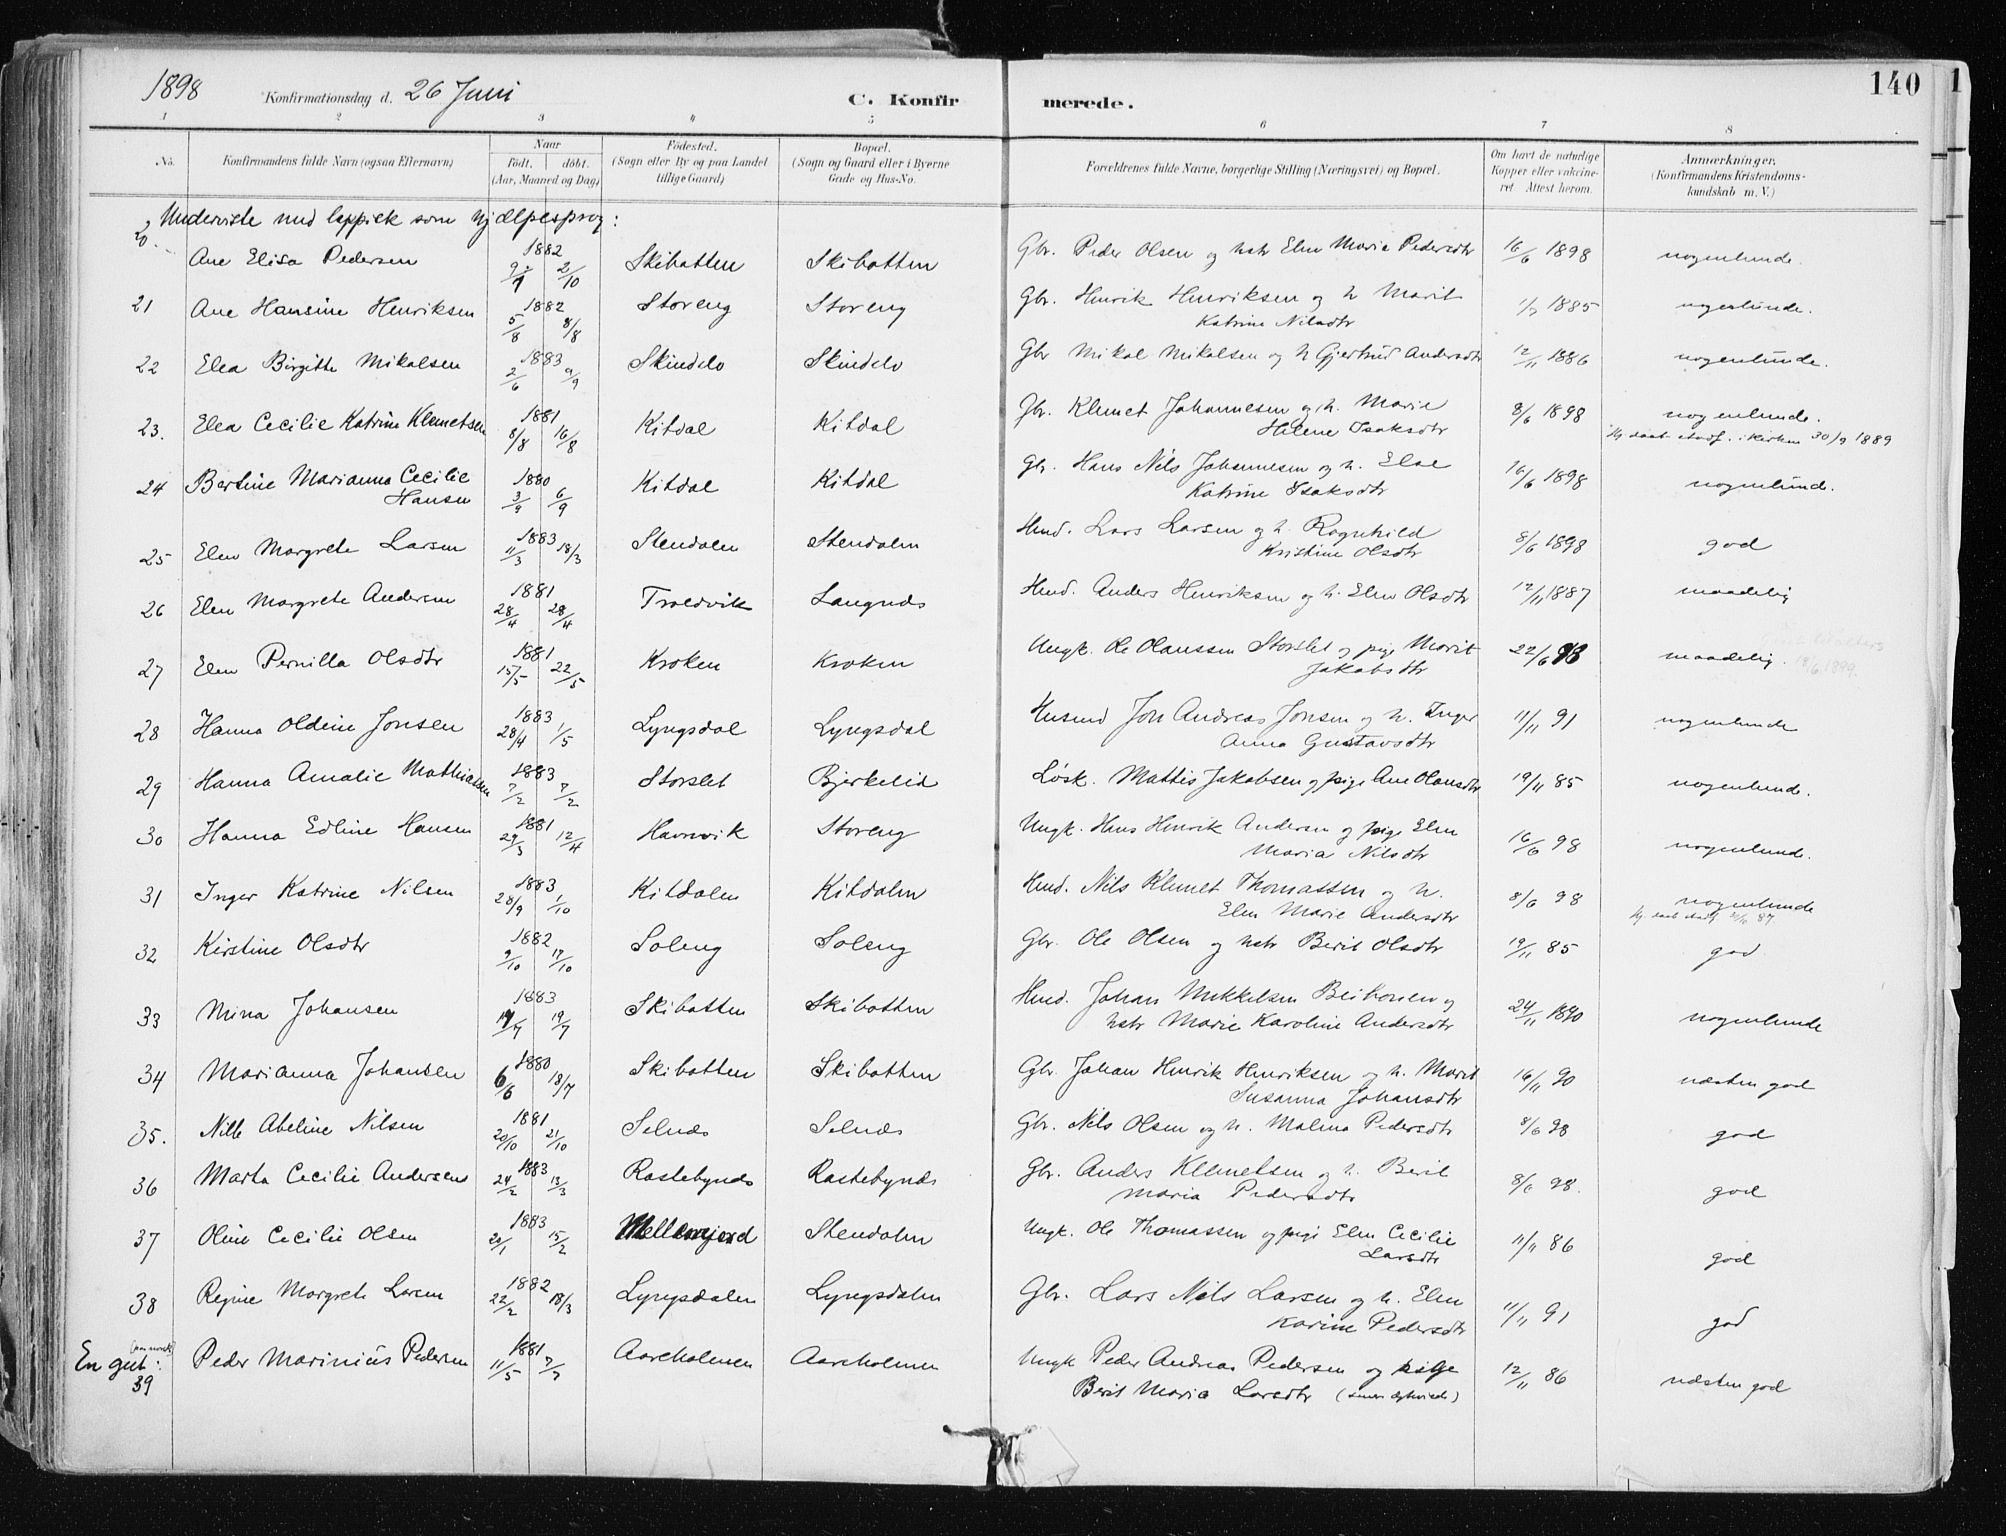 1898 Konfirmationsdag d. 26 Juni C. Konfirmerede. 140
1 2 3 4 5 6 7 8
No. Konfirmandens fulde Navn (ogsaa Efternavn) Naar født. døbt. (Aar, Maaned og Dag) Fødested. (Sogn eller By og paa Landet tillige Gaard) Bopæl. (Sogn og Gaard eller i Byerne Gade og Hus-No. Forældrenes fulde Navne, borgerlige Stilling (Næringsvei) og Bopæl. Om havt de naturlige Kopper eller vakcineret Attest herom. Anmærkninger. (Konfirmandens Kristendomskundskab m. V.)
Underviste med lappisk som hjælpesprog:
20. Ane Elisa Pedersen 1882 9/9 2/10 Skibotten Skibotten Gbr. Peder Olsen og hstr Elen Maria Pedersdtr 16/6 1898 nogenlunde.
21 Ane Hansine Henriksen 1882 5/8 8/8 Storeng Storeng Gbr. Henrik Henriksen og h Marit Katrine Nilsdtr 1/7 1885 nogenlunde.
22 Elea Birgitte Mikalsen 1883 2/6 9/9 Skindelv Skindelv Gbr Mikal Mikalsen og h Gjertrud Andersdtr 12/11 1886 nogenlunde.
23. Elea Cecilie Katrine Klemetsen 1881 8/8 16/8 Kitdal Kitdal Gbr. Klemet Johannesen og h. Marie Helene Isaksdtr 8/6 1898 nogenlunde. hj. daab stadf. i kirken 30/9 1889
24 Bertine Marianna Cecilie Hansen 1880 3/9 6/9 Kitdal Kitdal Gbr. Hans Nils Johannesen og h. Elae Katrine Isaksdtr 16/6 1898 nogenlunde.
25 Elen Margrete Larsen 1883 11/3 18/3 Stendalen Stendalen Hmd. Lars Larsen og h. Ragnhild Kristine Olsdtr 8/6 1898 god
26 Elen Margrete Andersen 1881 28/4 28/4 Troldvik Langnds Hmd. Anders Henriksen og h. Elen Olsdtr 12/11 1887 maadelig
27 Elen Pernilla Olsdtr 1881 15/5 22/5 Kroken Kroken Ungk. Ole Olaussen Storslet og pige Marit Jakobsdtr 22/6 98 maadelig. 18/6 1899.
28 Hanna Oldine Jonsen 1883 28/4 1/5 Lyngsdal Lyngsdal Husmd Jon Andreas Jonsen og h. Inger Anna Gustavsdtr 11/11 91 nogenlunde
29 Hanna Amalie Mathiassen 1883 7/2 7/2 Storslet Bjerkelid Løsk. Mattis Jakobsen og pige Ane Olausdtr 19/11 85 nogenlunde.
30 Hanna Edline Hansen 1881 29/3 12/4 Havnvik Storeng Ungk. Hans Henrik Andersen og pige Elen Maria Nilsdtr 16/6 98 nogenlunde.
31 Inger Katrine Nilsen 1883 28/9 1/10 Kitdalen Kitdalen Hmd. Nils Klemet Thomassen og h. Elen Marie Andersdtr 8/6 98 nogenlunde hj. daab stadf. 87
32 Kirstine Olsdtr 1882 9/10 17/10 Soleng Soleng Gbr. Ole Olsen og hstr Berit Olsdtr 19/11 85 god
33 Mina Johansen 1883 14/7 19/7 Skibotten Skibotten Hmd. Johan Mikkelsen og hstr Marie Karoline Andersdtr 24/11 1890 nogenlunde
34 Marianna Johansen 1880 6/6 18/7 Skibotten Skibotten Gbr. Johan Henrik Henriksen og h. Marit Susanna Johansdtr 16/11 90 næsten god
35. Nille Abeline Nilsen 1881 20/10 21/10 Selnds Selnds Gbr. Nils Olsen og h. Malena Pedersdtr 8/6 98 god
36 Marta Cecilie Andersen 1883 24/2 13/3 Rastebynds Rastebynds Gbr. Anders Klemetsen og h. Berit Maria Pedersdtr 8/6 98. god
37 Oline Cecilie Olsen 1883 20/1 15/2 Mellemjord Stendalen Ungk. Ole Thomassen og pige Elen Cecilie Larsdtr 11/11 86 god
38 Regine Margrete Larsen 1882 22/2 18/3 Lyngsdalen Lyngsdalen Gbr. Lars Nils Larsen og h. Elen Karine Pedersdtr 11/11 91 god
En gut: (paa norsk)
39 Peder Marinius Pedersen 1881 11/5 7/7 Aareholmen Aareholmen Ungk Peder Andreas Pedersen og pige Berit Maria Larsdtr (senere egteviede) 12/11 86 næsten god